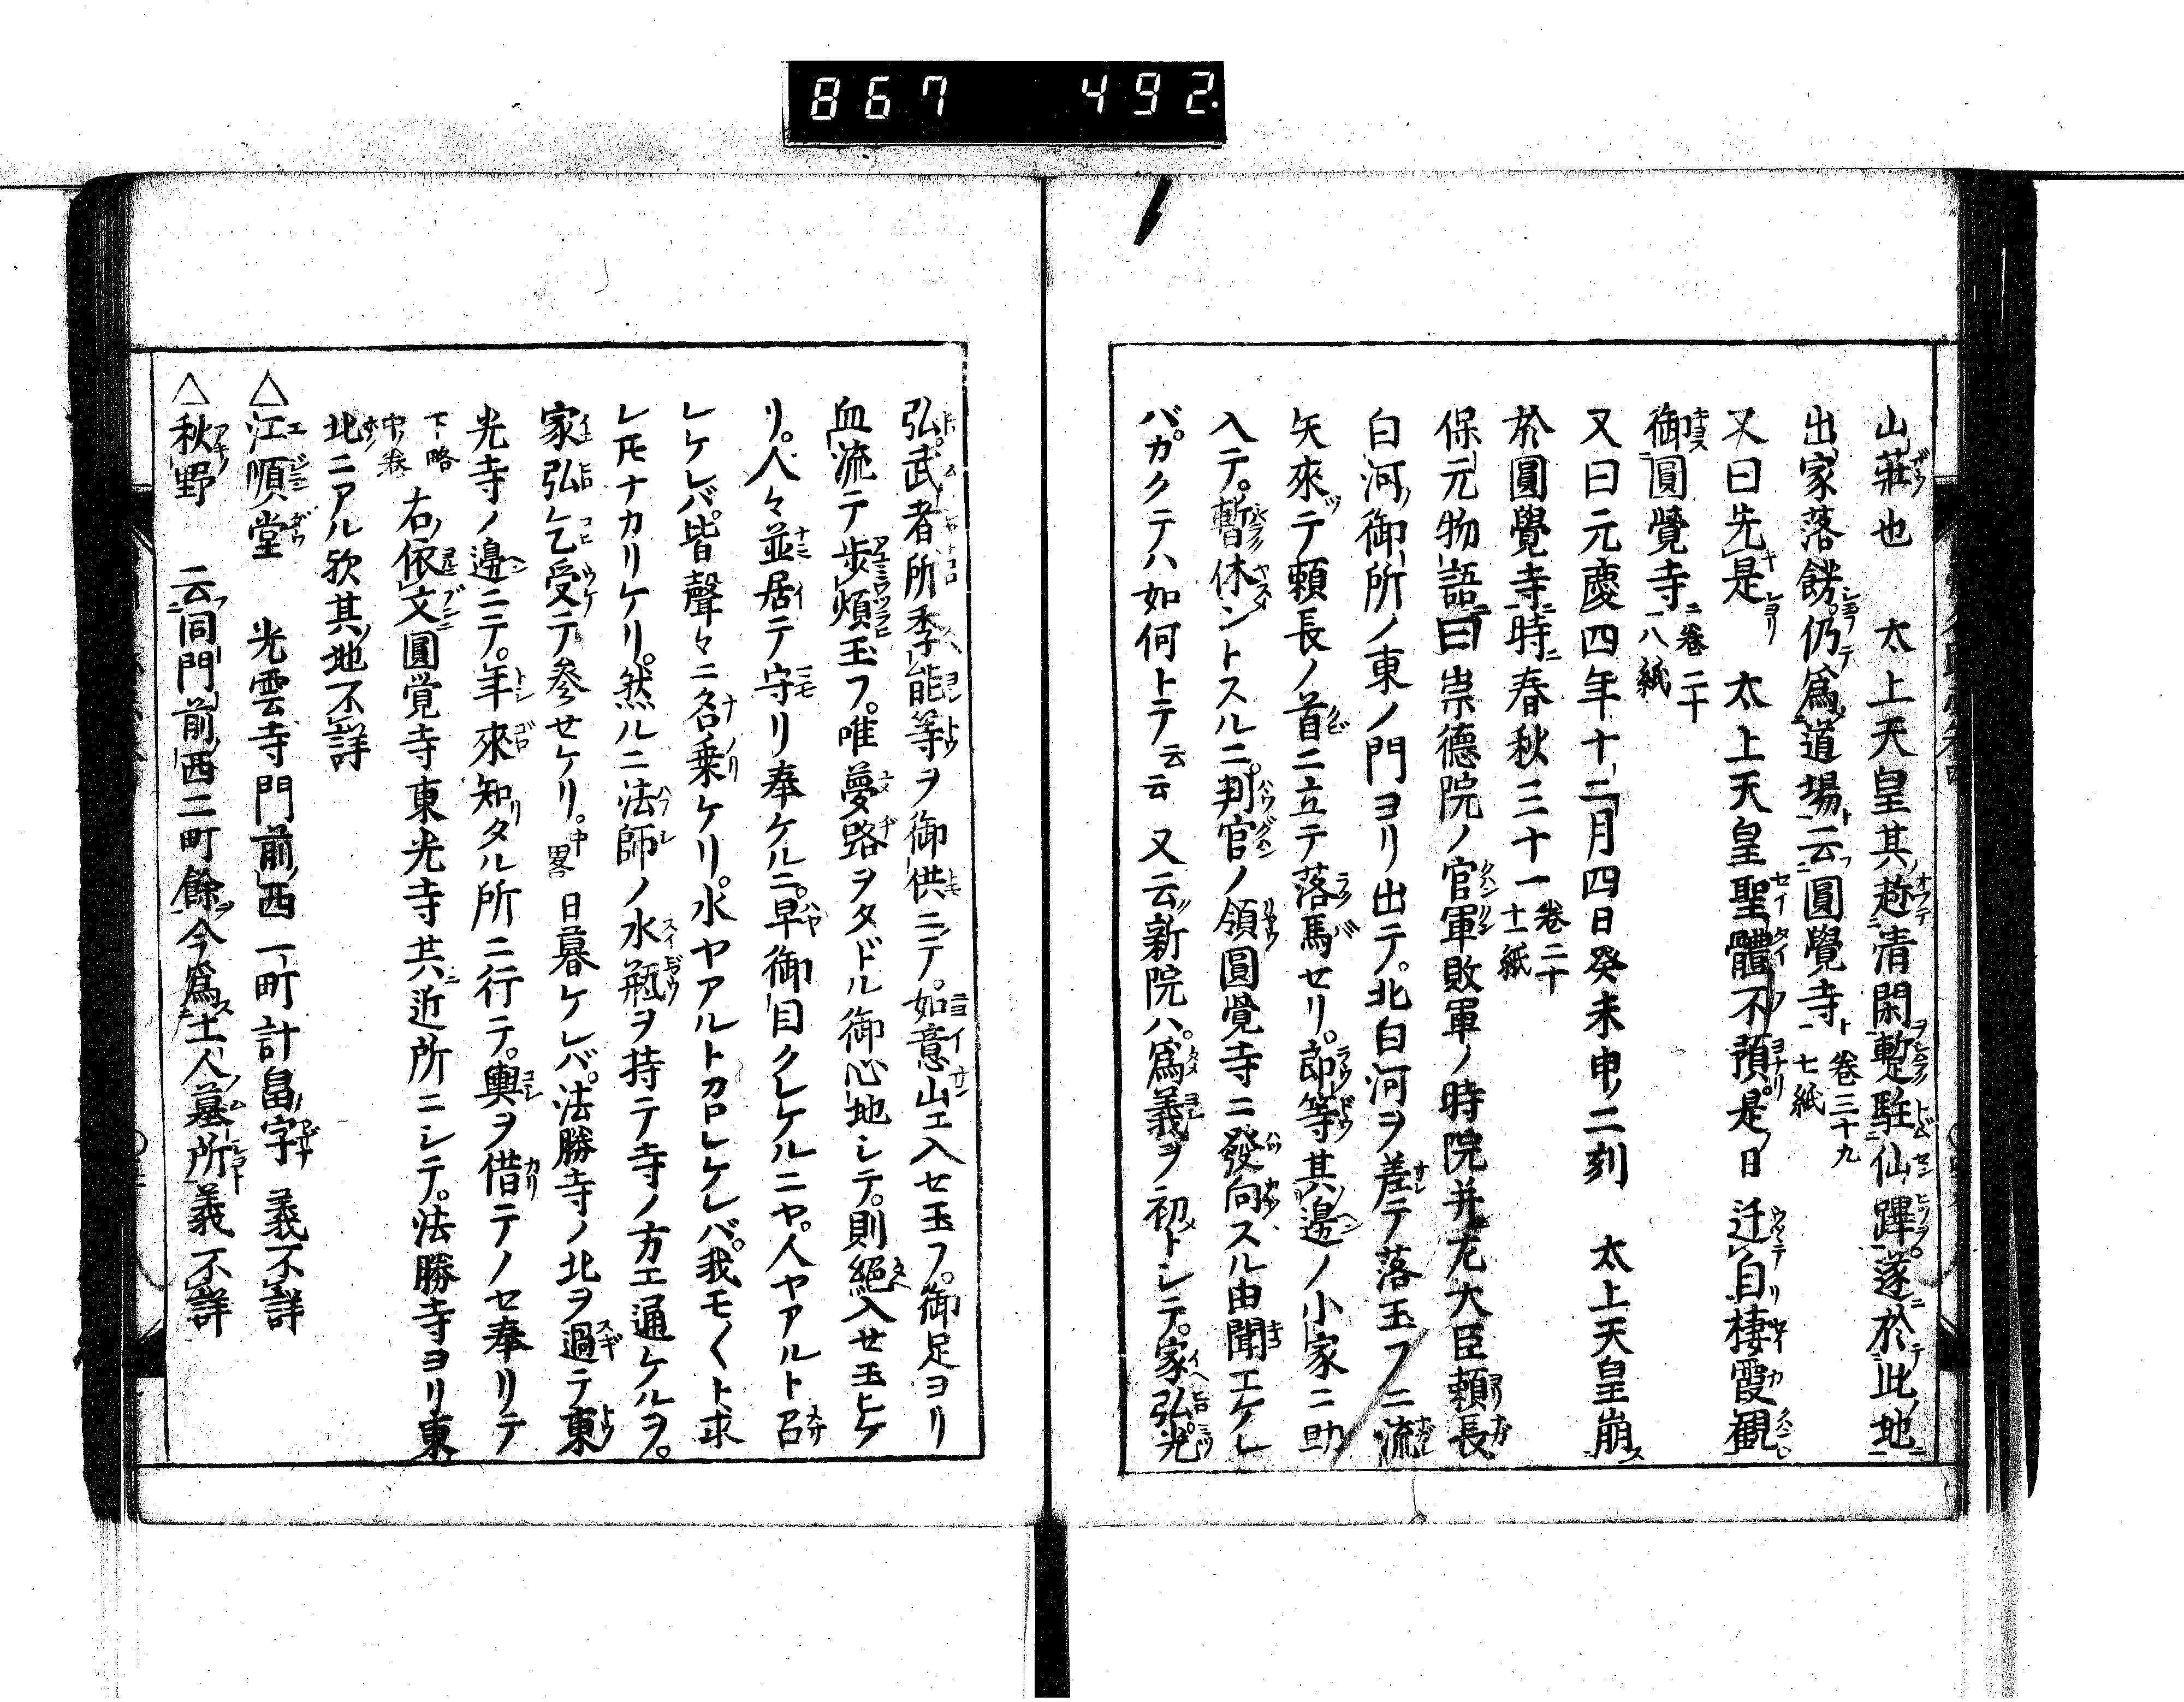 867 492
山莊也 太上天皇其趂清閑暫駐仙蹕遂於此地
出家落餝仍為道場云圓覺寺 卷三十九 七紙
又曰先是 太上天皇聖體不預是日 迁自棲霞観
御圓覺寺 卷二十 八紙
又曰元慶四年十二月四日癸未申二刻 太上天皇崩
於圓覺寺時春秋三十一 卷二十 十一紙
保元物語曰崇德院ノ官軍敗軍ノ時院并左大臣頼長
白河御所ノ東ノ門ヨリ出テ。北白河ヲ差テ落玉フニ流
矢來テ頼長ノ首ニ立テ落馬セリ。郎等其邊ノ小家ニ助
入テ。暫休ントスルニ。判官ノ領圓覚寺ニ發向スル由聞エケレ
バ。カクテハ如何トテ云云 又云新院ハ。為義ヲ初トシテ。家弘。光
弘。武者所季能等ヲ御供ニテ。如意山エ入セ玉フ。御足ヨリ
血流テ歩煩玉フ。唯夢路ヲタドル御心地シテ。則絕入セ玉ヒケ
リ。人々並居テ守リ奉ケルニ。早御目クレケルニヤ。人ヤアルト召
レケレバ。皆聲々ニ名乗ケリ。水ヤアルトカロレケレバ。我モ〱ト求
レ𪜈ナカリケリ。然ルニ法師ノ水瓶ヲ持テ寺ノ方エ通ケルヲ。
家弘乞受テ參セケリ。中畧 日暮ケレバ。法勝寺ノ北ヲ過テ東
光寺ノ邊ニテ。年來知タル所ニ行テ。輿ヲ借テノセ奉リテ
下略 中卷 右依文圓覚寺東光寺共近所ニシテ。法勝寺ヨリ東
北ニアル歟其地不詳
△江順堂 光雲寺門前西一町計畠字 義不詳
△秋野 云同門前西二町餘今為土人墓所義不詳